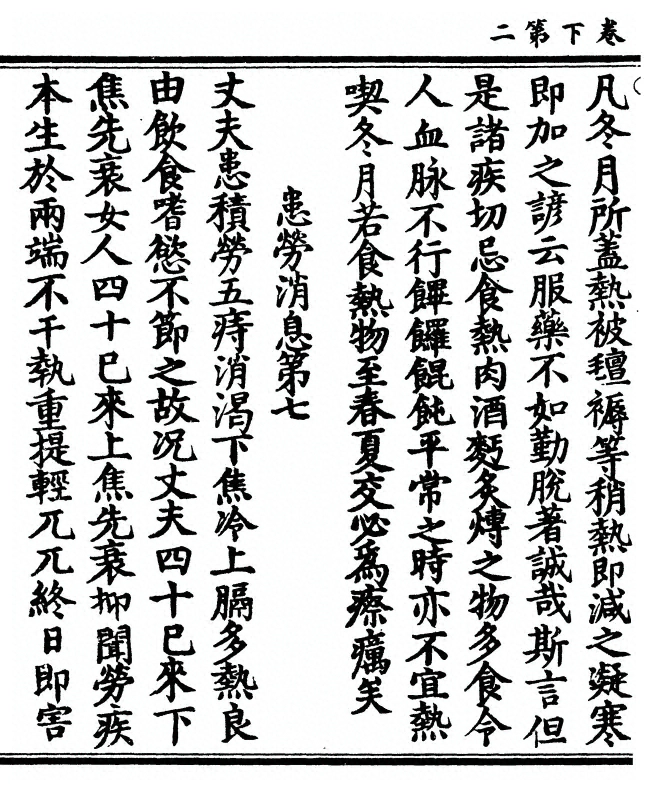 卷下第二
凡冬月所蓋熱被氊褥等稍熱即減之凝寒
即加之諺云服藥不如勤脫著誠哉斯言但
是諸疾切忌食熱肉酒麫炙煿之物多食令
人血脉不行饆饠餛飩平常之時亦不宜熱
喫冬月若食熱物至春夏交必爲療癘矣
患勞消息第七
丈夫患積勞五痔消渴下焦冷上膈多熱良
由飲食嗜慾不節之故况丈夫四十已來下
焦先衰女人四十已來上焦先衰抑聞勞疾
本生於兩端不干執重提輕兀兀終日即害